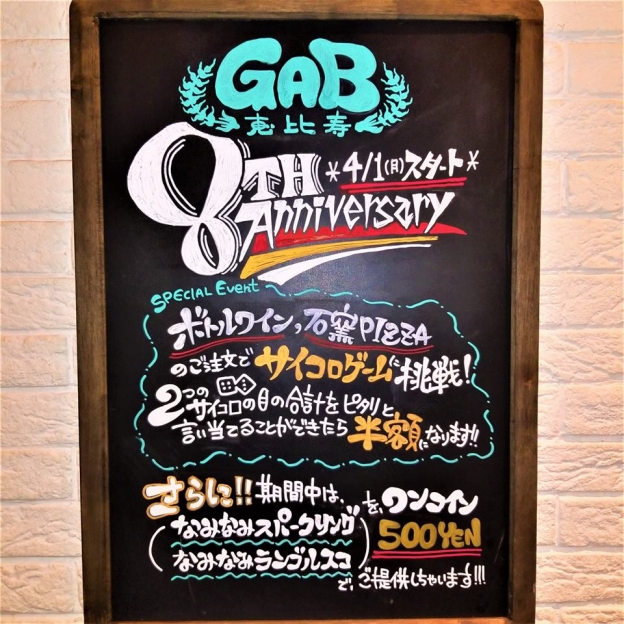 GAB
恵比寿
8TH
*4/1(月)スタート*
Anniversary
SPECIAL Event
ボトルワイン,石窯PIZZA
のご注文でサイコロゲームに挑戦!
2つのサイコロの目の合計をピタリと
言い当てることができたら半額になります!!
さらに!!期間中は、
(なみなみスパークリング
なみなみランブルスコ)
を、ワンコイン
500YEN
で、ご提供しちゃいます!!!